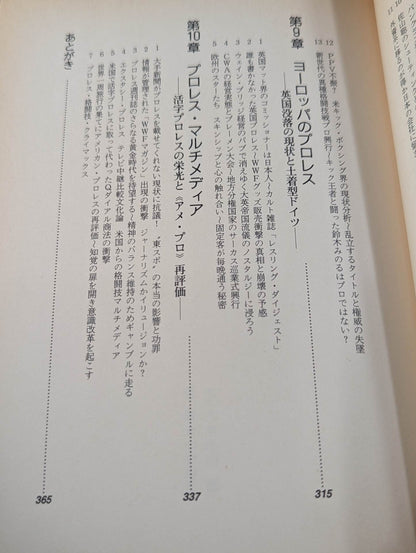 12 PPV不振? 米キック・ボクシング界の現状分析〜乱立するタイトルと権威の失墜
13 新世代の真格闘技戦プロ興行〜キック王者と闘った鈴木みのるはプロではない?
第9章 ヨーロッパのプロレス
——英国没落の現状と土着型ドイツ——
315
1 英国マット界のコミッショナーは日本人〜カルト雑誌「レスリング・ダイジェスト」
2 誰も書かなかった英国プロレス〜WWFグッズ販売衝撃の真相と崩壊の予感
3 ウェイン・ブリッジ経営のパブで消えゆく大英帝国流儀のノスタルジーに浸ろう
4 CWAの経営実態とブレーメン大会〜地方分権国家のサーカス巡業式興行
5 欧州のスターたち スキンシップと心の触れ合い〜固定客が毎晩通う秘密
第10章 プロレス・マルチメディア
——活字プロレスの栄光と《アメ・プロ》再評価——
337
1 大手新聞がプロレスを載せてくれない現状に抗議! “東スポ”の本当の影響と功罪
2 情報が管理された「WWFマガジン」出現の衝撃 ジャーナリズムかイリュージョンか?
3 プロレス週刊誌のさらなる黄金時代を待望する〜精神のバランス維持のためギャンブルに走る
4 エクスタシー・プロレス テレビ中継比較文化論 米国からの格闘技マルチメディア
5 米国で活字プロレスに取って代わったQダイアル商法の衝撃
6 世界一周旅行の果てにアメリカン・プロレスの再評価〜知覚の扉を開き意識改革を起こす
7 プロレス・格闘技・クライマックス
あとがき
365